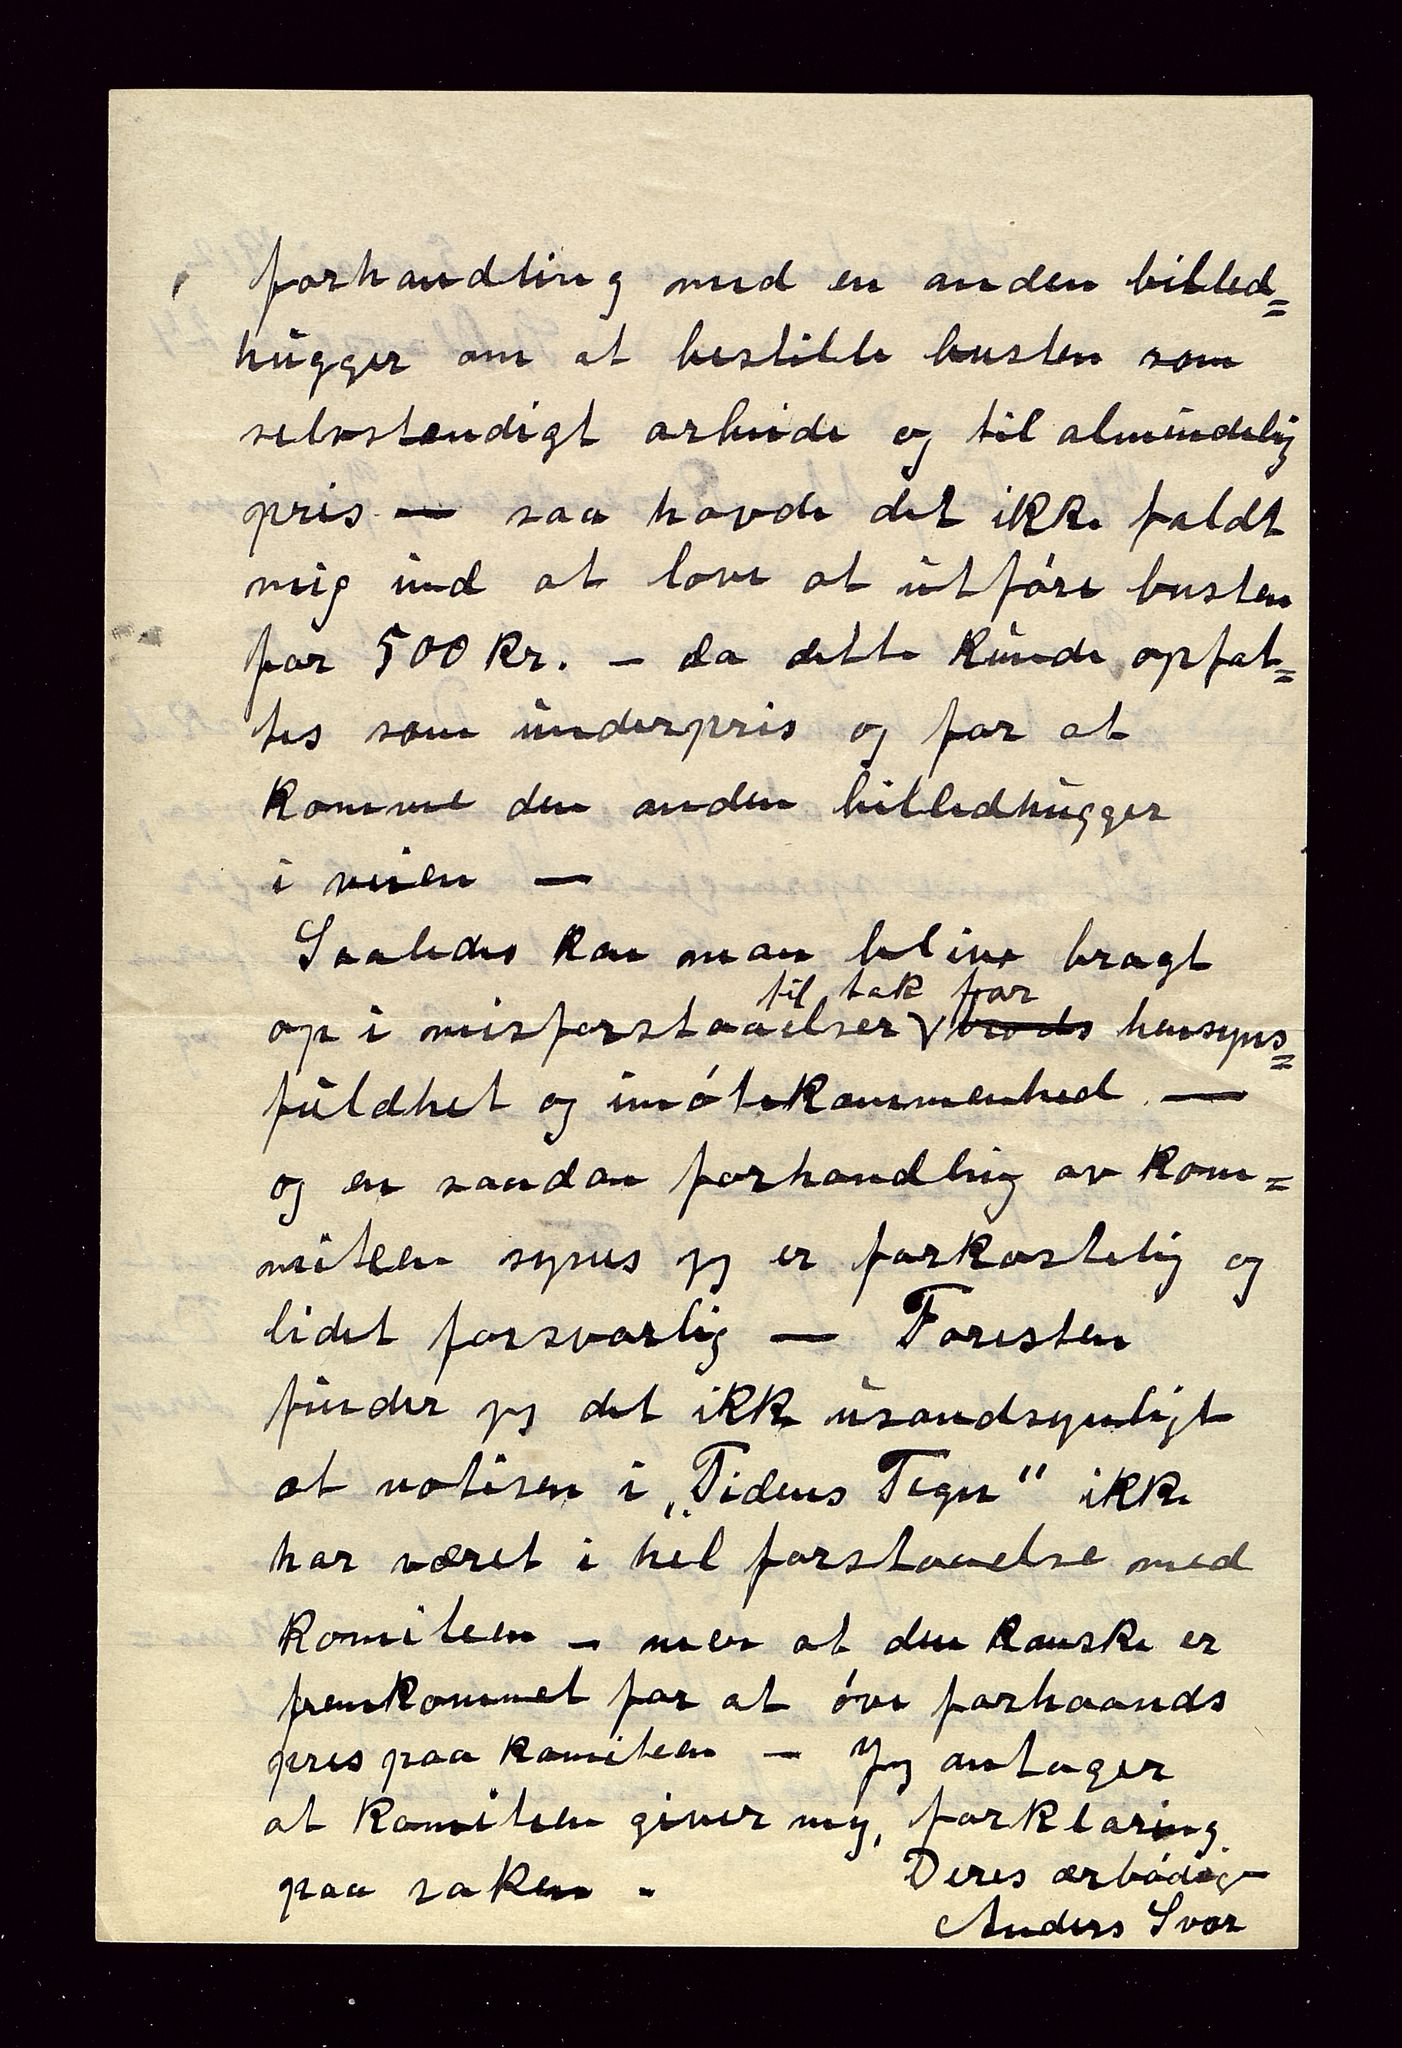 forhandling med en anden billed=
hugger om at bestille busten som
selvstændigt arbeide og til almindelig
pris — saa havde det ikke faldt
mig ind at love at utføre busten
for 500 kr. — da dette kunde opfat=
tes som underpris og for at
komme den anden billedhugger
i veien —
Saaledes kan man blive bragt
til tak for
op i misforstaaelser hensyns=
fuldhet og imøtekommenhed —
og en saadan forhandling av kom=
miteen synes jeg er forkastelig og
lidet forsvarlig — Foresten
finder jeg det ikke usandsynligt
at notisen i „Tidens Tegn" ikke
har været i hel forstaaelse med
komiteen — men at den kanske er
fremkommet for at øve forhaands
pres paa komiteen — Jeg antager
at komiteen giver mig, forklaring
paa saken .
Deres ærbødige
Anders Svor